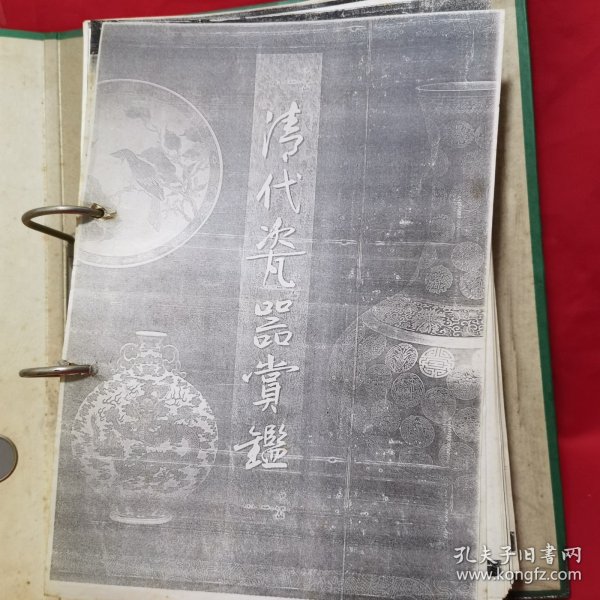 清代瓷器賞鑑
孔夫子旧書网
www.kongfz.com